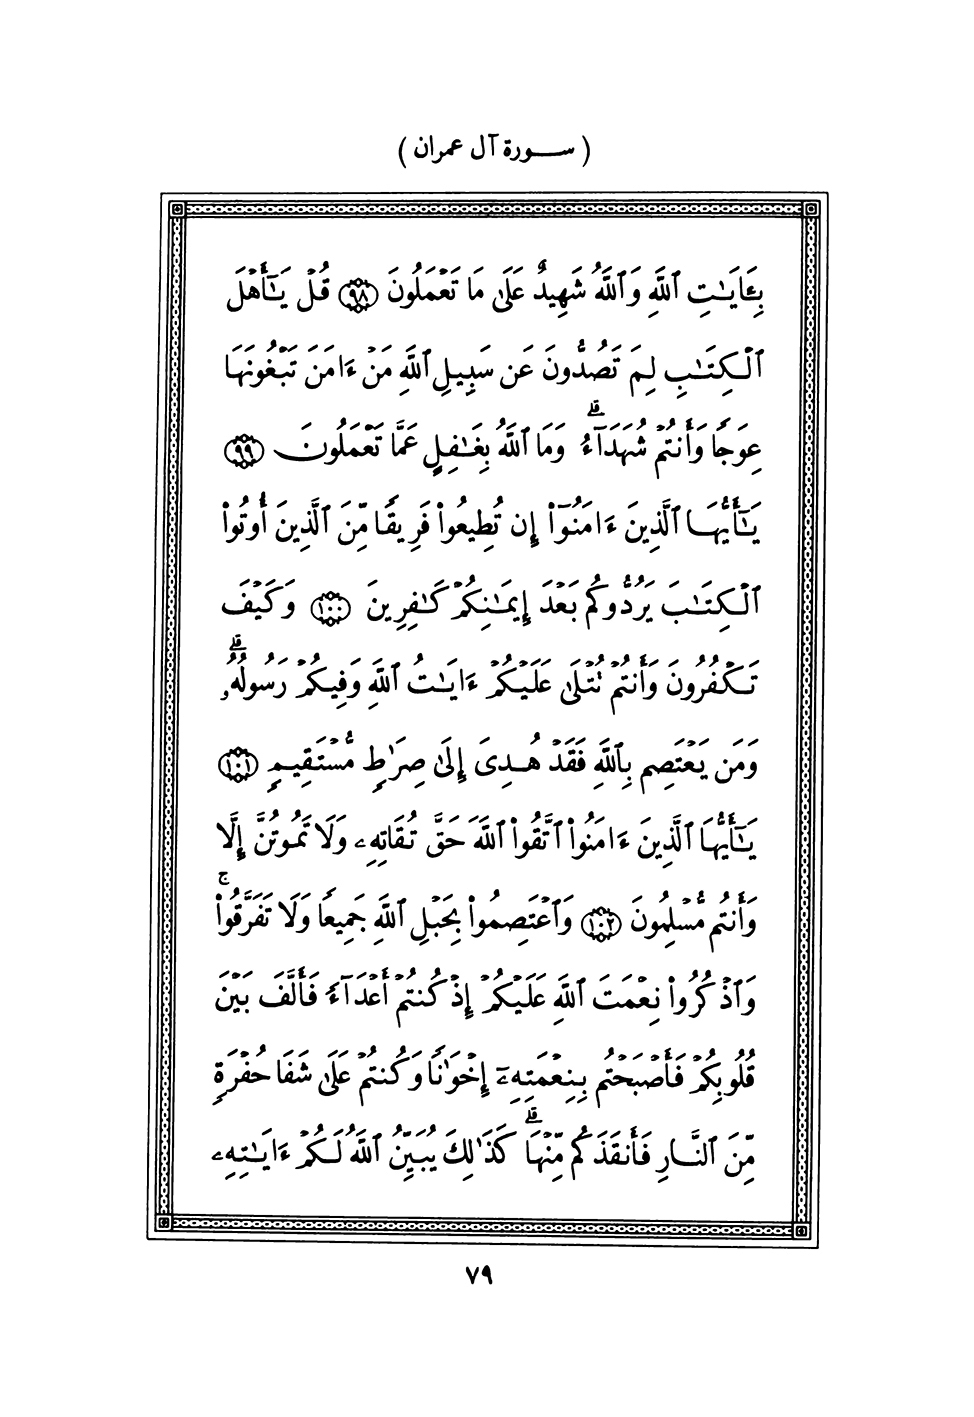 ( سـورة آل عمران )
بِـَٔايَٰتِ ٱللَّهِ وَٱللَّهُ شَهِيدٌ عَلَىٰ مَا تَعْمَلُونَ ﴿٩٨﴾ قُلْ يَٰٓأَهْلَ
ٱلْكِتَٰبِ لِمَ تَصُدُّونَ عَن سَبِيلِ ٱللَّهِ مَنْ ءَامَنَ تَبْغُونَهَا
عِوَجًا وَأَنتُمْ شُهَدَآءُ ۗ وَمَا ٱللَّهُ بِغَٰفِلٍ عَمَّا تَعْمَلُونَ ﴿٩٩﴾
يَٰٓأَيُّهَا ٱلَّذِينَ ءَامَنُوٓا۟ إِن تُطِيعُوا۟ فَرِيقًا مِّنَ ٱلَّذِينَ أُوتُوا۟
ٱلْكِتَٰبَ يَرُدُّوكُم بَعْدَ إِيمَٰنِكُمْ كَٰفِرِينَ ﴿١٠٠﴾ وَكَيْفَ
تَكْفُرُونَ وَأَنتُمْ تُتْلَىٰ عَلَيْكُمْ ءَايَٰتُ ٱللَّهِ وَفِيكُمْ رَسُولُهُۥ ۗ
وَمَن يَعْتَصِم بِٱللَّهِ فَقَدْ هُدِىَ إِلَىٰ صِرَٰطٍ مُّسْتَقِيمٍ ﴿١٠١﴾
يَٰٓأَيُّهَا ٱلَّذِينَ ءَامَنُوا۟ ٱتَّقُوا۟ ٱللَّهَ حَقَّ تُقَاتِهِۦ وَلَا تَمُوتُنَّ إِلَّا
وَأَنتُم مُّسْلِمُونَ ﴿١٠٢﴾ وَٱعْتَصِمُوا۟ بِحَبْلِ ٱللَّهِ جَمِيعًا وَلَا تَفَرَّقُوا۟ ۚ
وَٱذْكُرُوا۟ نِعْمَتَ ٱللَّهِ عَلَيْكُمْ إِذْ كُنتُمْ أَعْدَآءً فَأَلَّفَ بَيْنَ
قُلُوبِكُمْ فَأَصْبَحْتُم بِنِعْمَتِهِۦٓ إِخْوَٰنًا وَكُنتُمْ عَلَىٰ شَفَا حُفْرَةٍ
مِّنَ ٱلنَّارِ فَأَنقَذَكُم مِّنْهَا ۗ كَذَٰلِكَ يُبَيِّنُ ٱللَّهُ لَكُمْ ءَايَٰتِهِۦ
٧٩